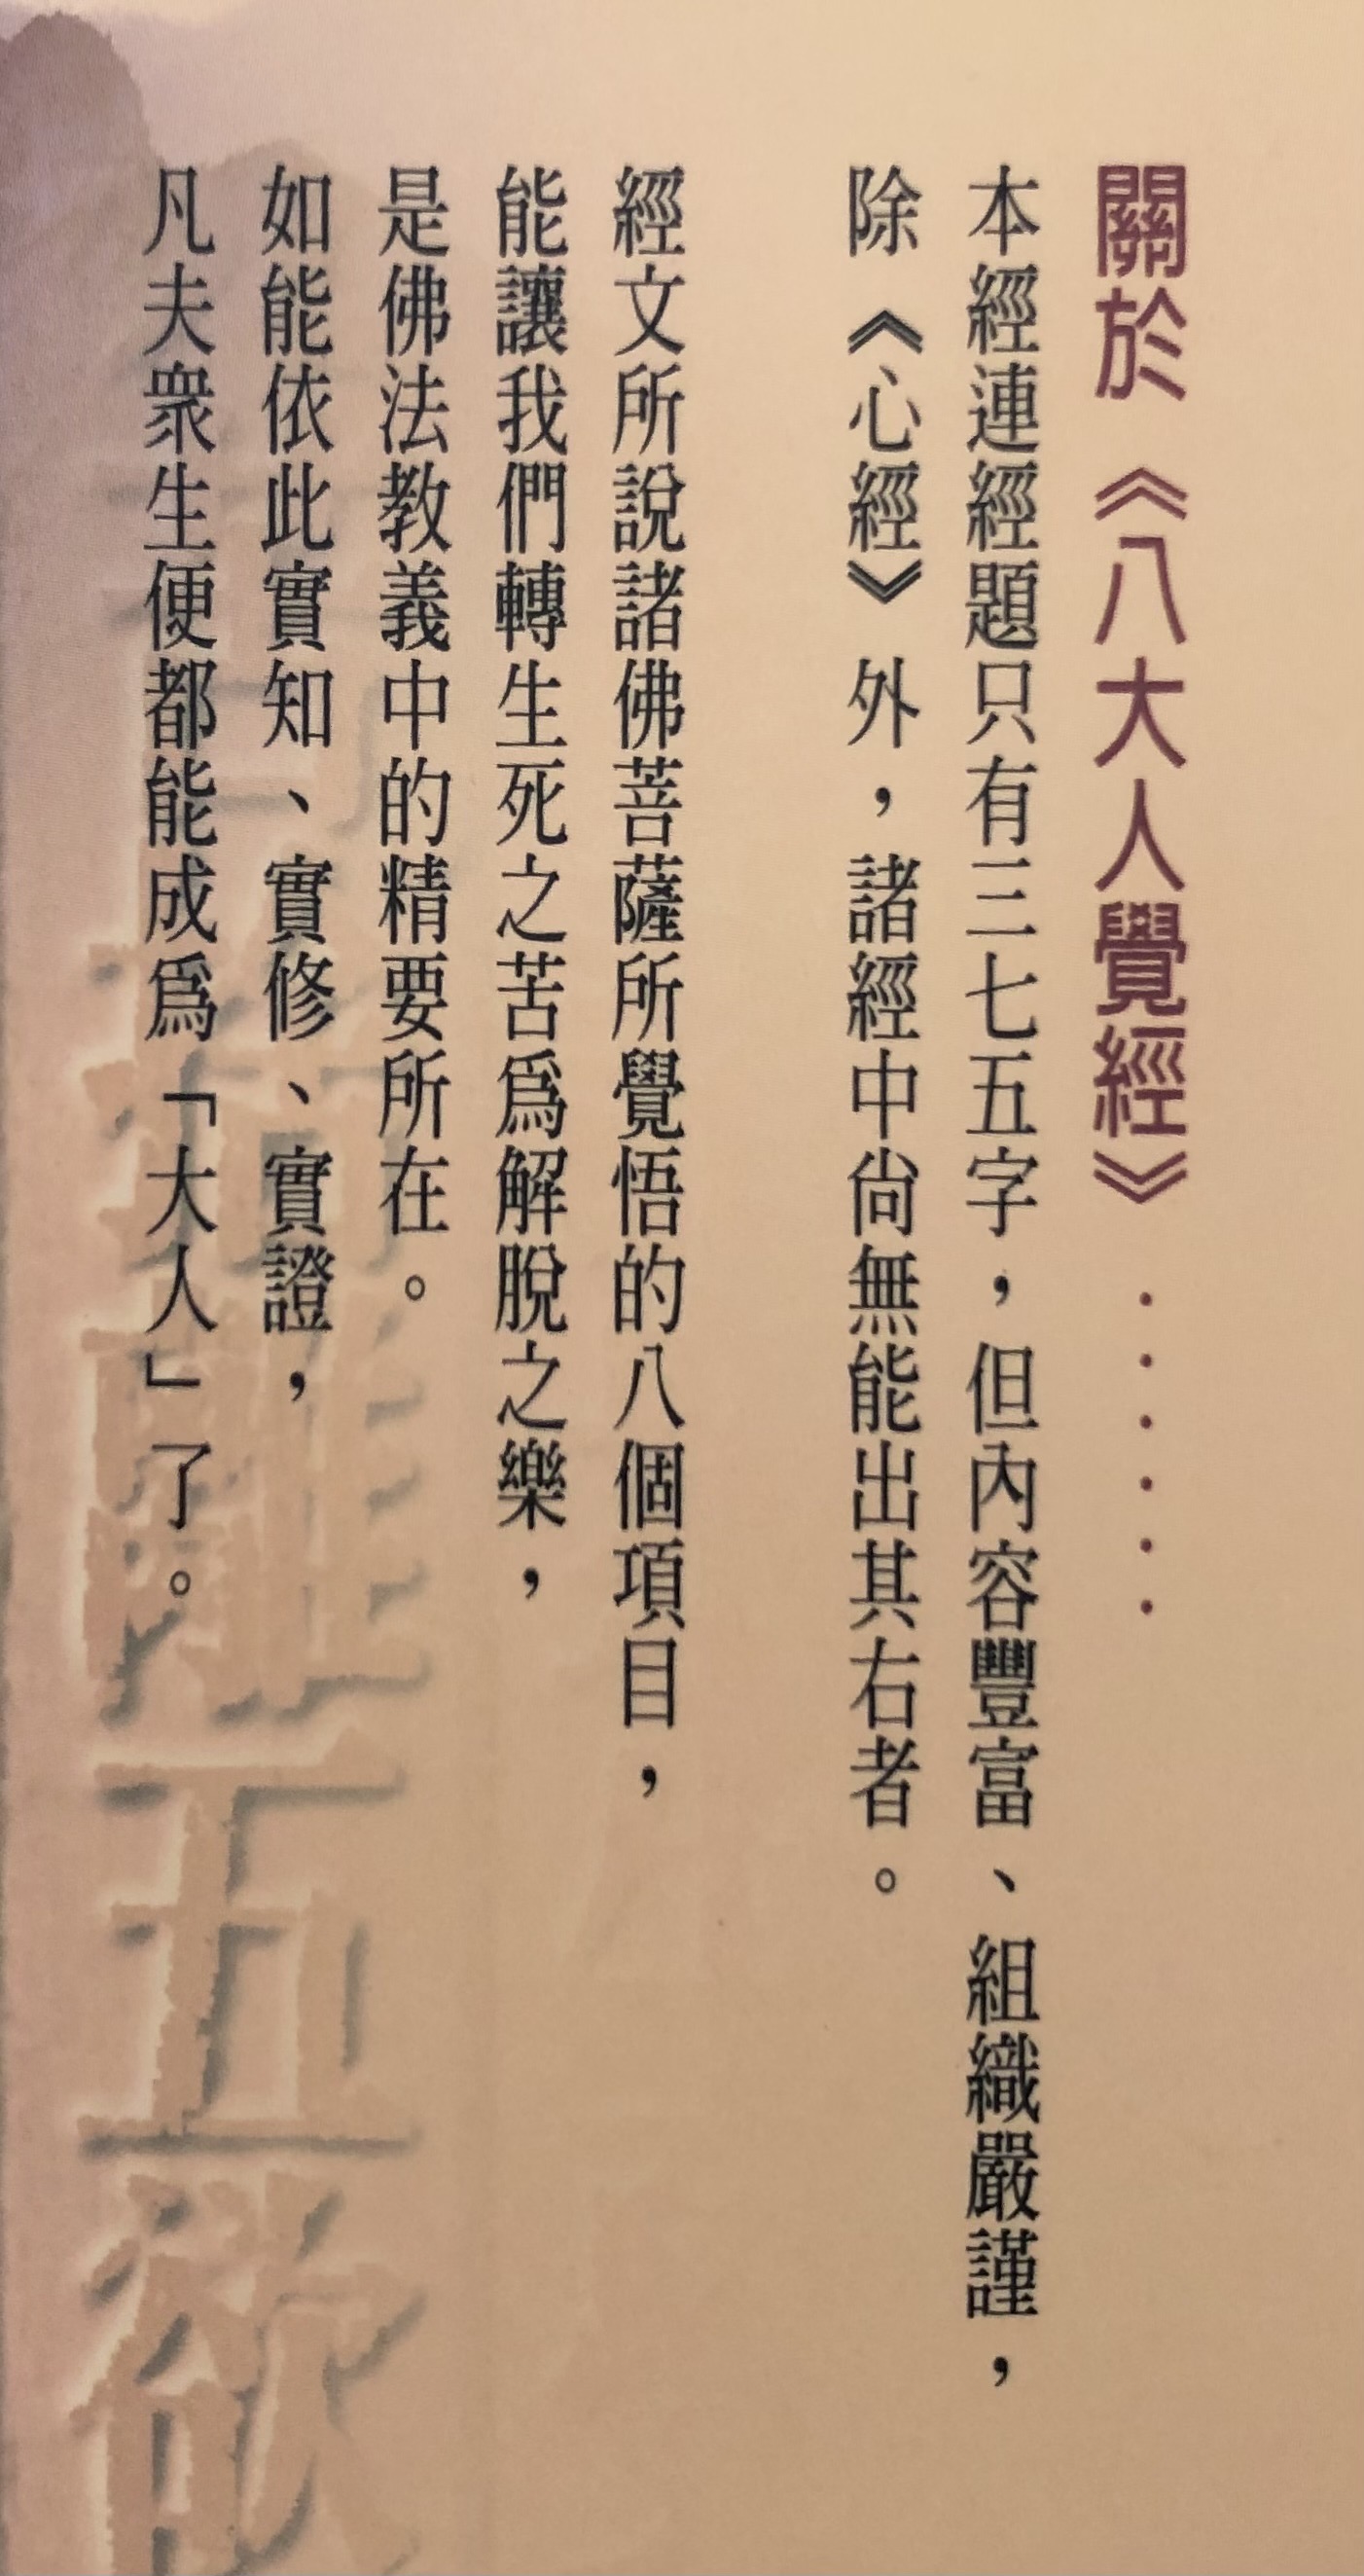 關於《八大人覺經》······
本經連經題只有三七五字，但內容豐富、組織嚴謹，
除《心經》外，諸經中尚無能出其右者。
經文所說諸佛菩薩所覺悟的八個項目，
能讓我們轉生死之苦爲解脫之樂，
是佛法教義中的精要所在。
如能依此實知、實修、實證，
凡夫眾生便都能成爲「大人」了。
離五欲